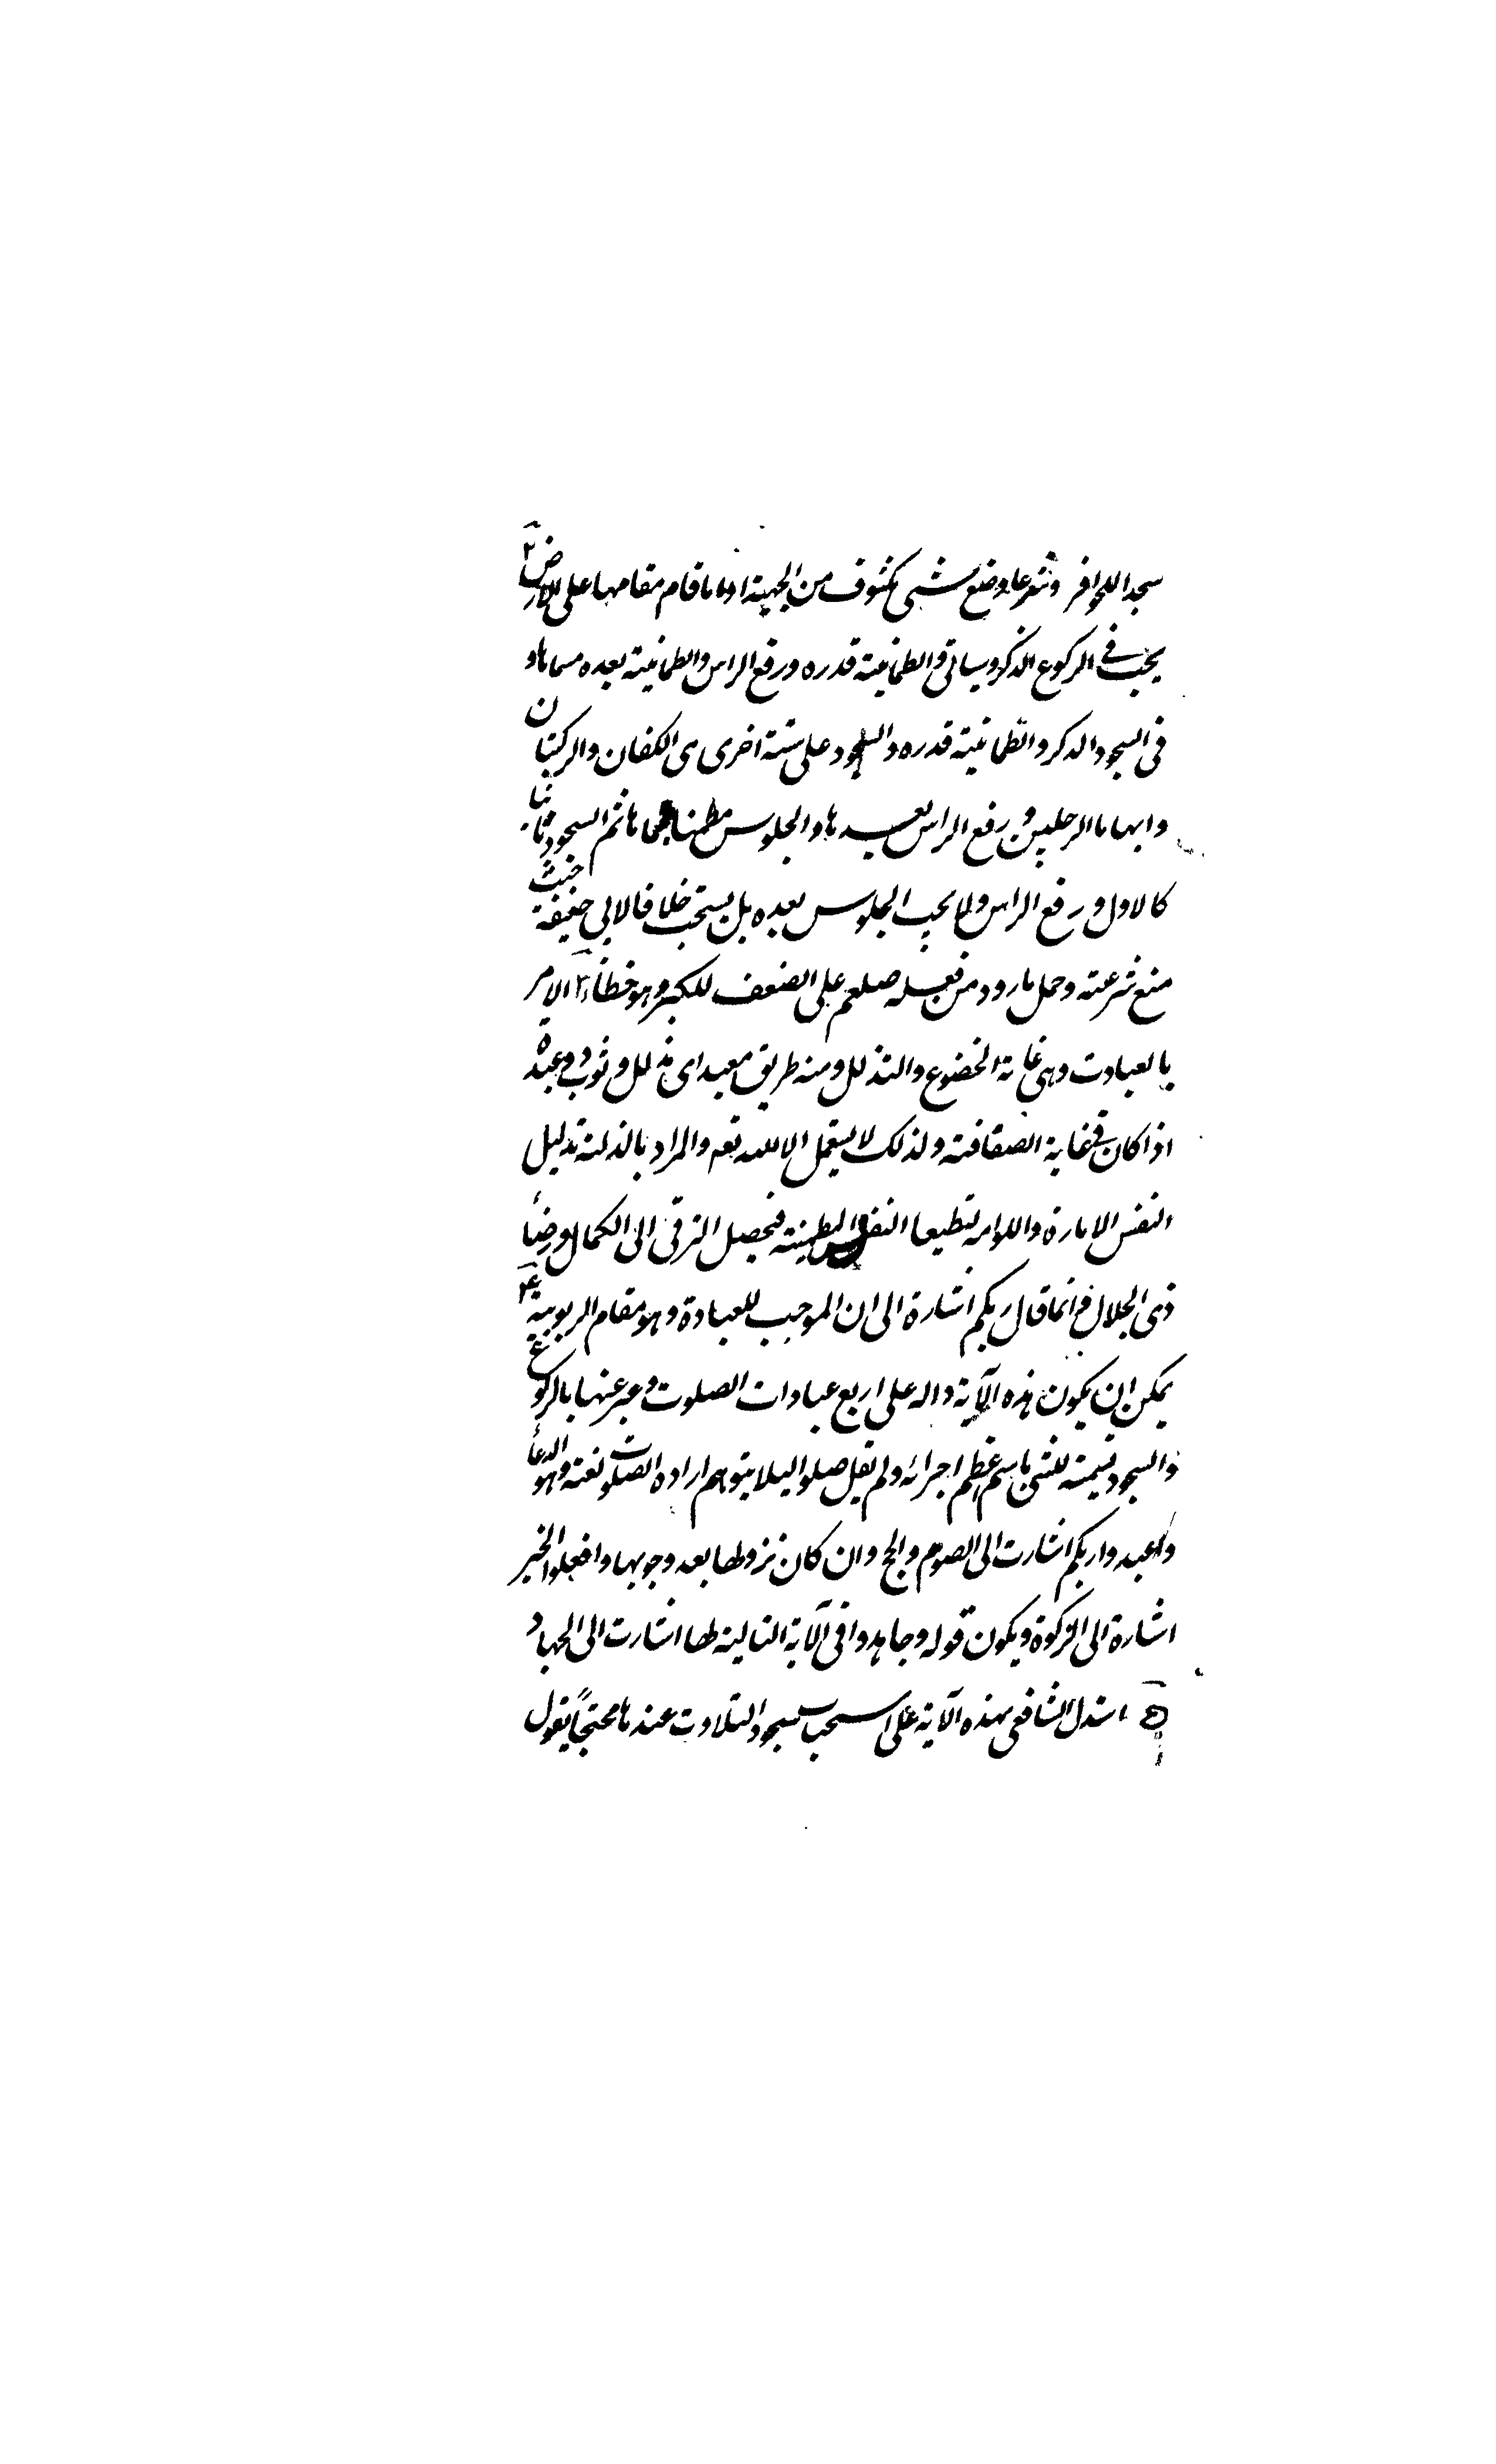 سجدا للحوافر وشرعا وضع شىء مكشوف من الجبهة او ما قام مقامها على الارض ٢
يجب فى الركوع الذكر وسياتى والطمانينة قدره ورفع الراس والطمانينة بعده مسماها و
فى السجود الذكر والطمانينة قدره والسجود على ستة اخرى هى الكفان والركبتان
وابهاما الرجلين ورفع الراس بعدها والجلوس مطمئنا ثم السجود ثانيا
كالاول ورفع الراس ولا يجب الجلوس بعده بل يستحب خلافا لابى حنيفة حيث
منع شرعيته وحمل ما رود من فعله صلعم على الضعف للكبر وهو خطأ ٣ الامر
بالعبادت وهى غاية الخضوع والتذلل ومنه طريق معبد اى مذلل وثوب ذو عبدة
اذا كان فى غاية الصفاقة ولذلك لا يستعمل الا لله تعم والمراد بالذلة تذليل
النفس الامارة واللوامه لتطيعا النفس المطمينة فيحصل الترقى الى الكمال ورضأ
ذى الجلال وانما قال ربكم اشارة الى ان الموجب للعبادة وهو مقام الربوبية ٤
يمكن ان يكون هذه الآية داله على اربع عبادات الصلوت وعبر عنها بالركوع
والسجود تسمية للشئ باسم اعظم اجرائه ولم يقل صلوا ليلا يتوهم اراده الصلوت لغة وهو الدعأ
واعبدوا ربكم اشارت الى الصوم والحج وان كان نزولها بعد وجوبها وافعلوا الخير
اشارة الى الزكوة ويكون قوله وجاهدوا فى الآية التالية لها اشارت الى الجهاد
٥ استدل الشافعى بهذه الآية على استحباب سجود التلاوت عندها محتجاً بقول